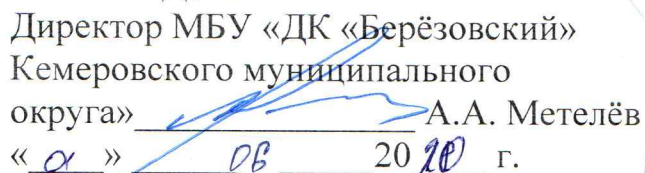 Директор МБУ «ДК «Берёзовский»
Кемеровского муниципального
округа»______________ А.А. Метелёв
«____» 06 20 20 г.